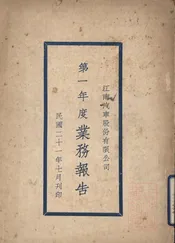 江南汽車股份有限公司
第一年度業務報告
民國二十一年七月刊印